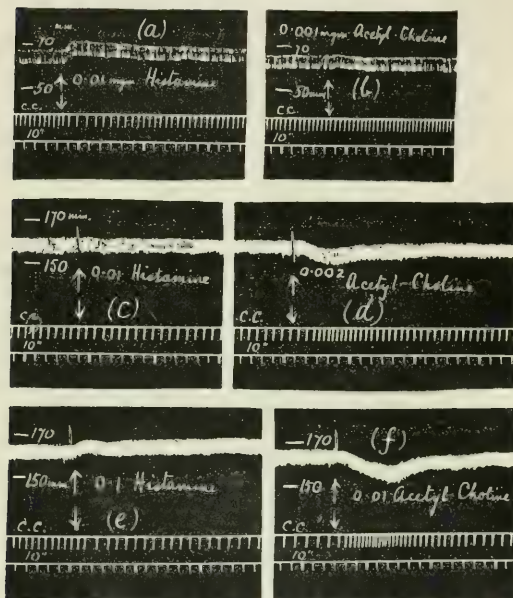 (a)
-70
0.01 mgm Histamine
-50
c.c.
10"
0.001 mgm Acetyl-Choline
-70
-50
(b)
c.c.
10"
-170 mm.
-150
0.01 Histamine
(c)
10"
0.002
Acetyl-Choline
(d)
C.C.
10"
-170
-150
0.1 Histamine
(e)
c.c.
10"
-170
(f)
-150
0.01 Acetyl Choline
c.c.
10"